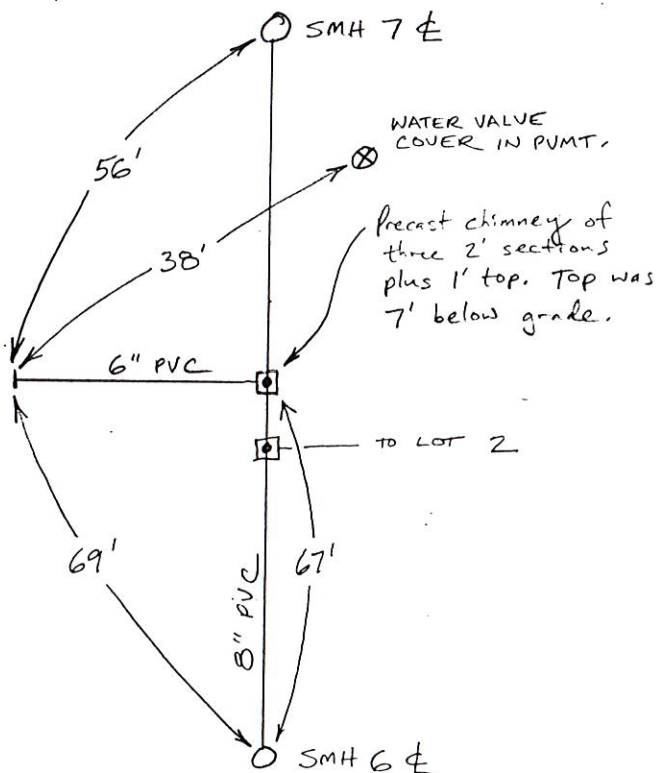 SMH 7 ℄
WATER VALVE
COVER IN PVMT.
56'
38'
Precast chimney of
three 2' sections
plus 1' top. Top was
7' below grade.
6" PVC
TO LOT 2
69'
67'
8" PVC
SMH 6 ℄